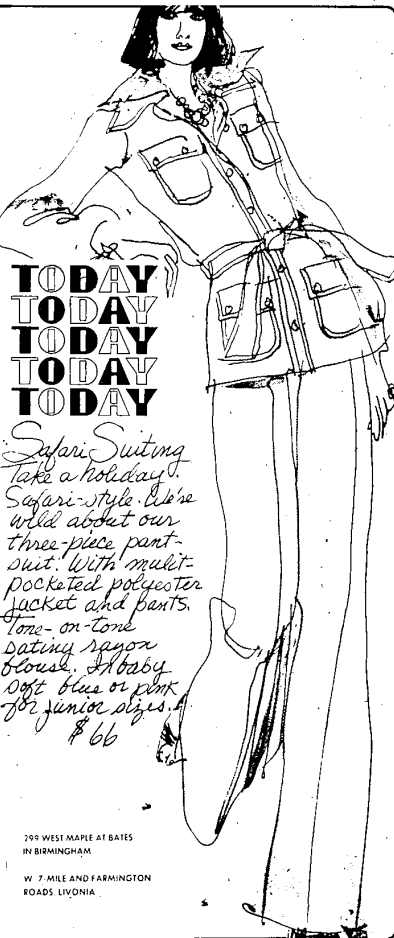 TODAY
TODAY
TODAY
TODAY
TODAY
Safari Suiting
Take a holiday.
Safari-style. We're
wild about our
three-piece pant-
suit. With mulit-
pocketed polyester
jacket and pants.
Tone-on-tone
satiny rayon
blouse. In baby
soft blue or pink
for junior sizes.
$66
299 WEST MAPLE AT BATES
IN BIRMINGHAM
W. 7-MILE AND FARMINGTON
ROADS, LIVONIA